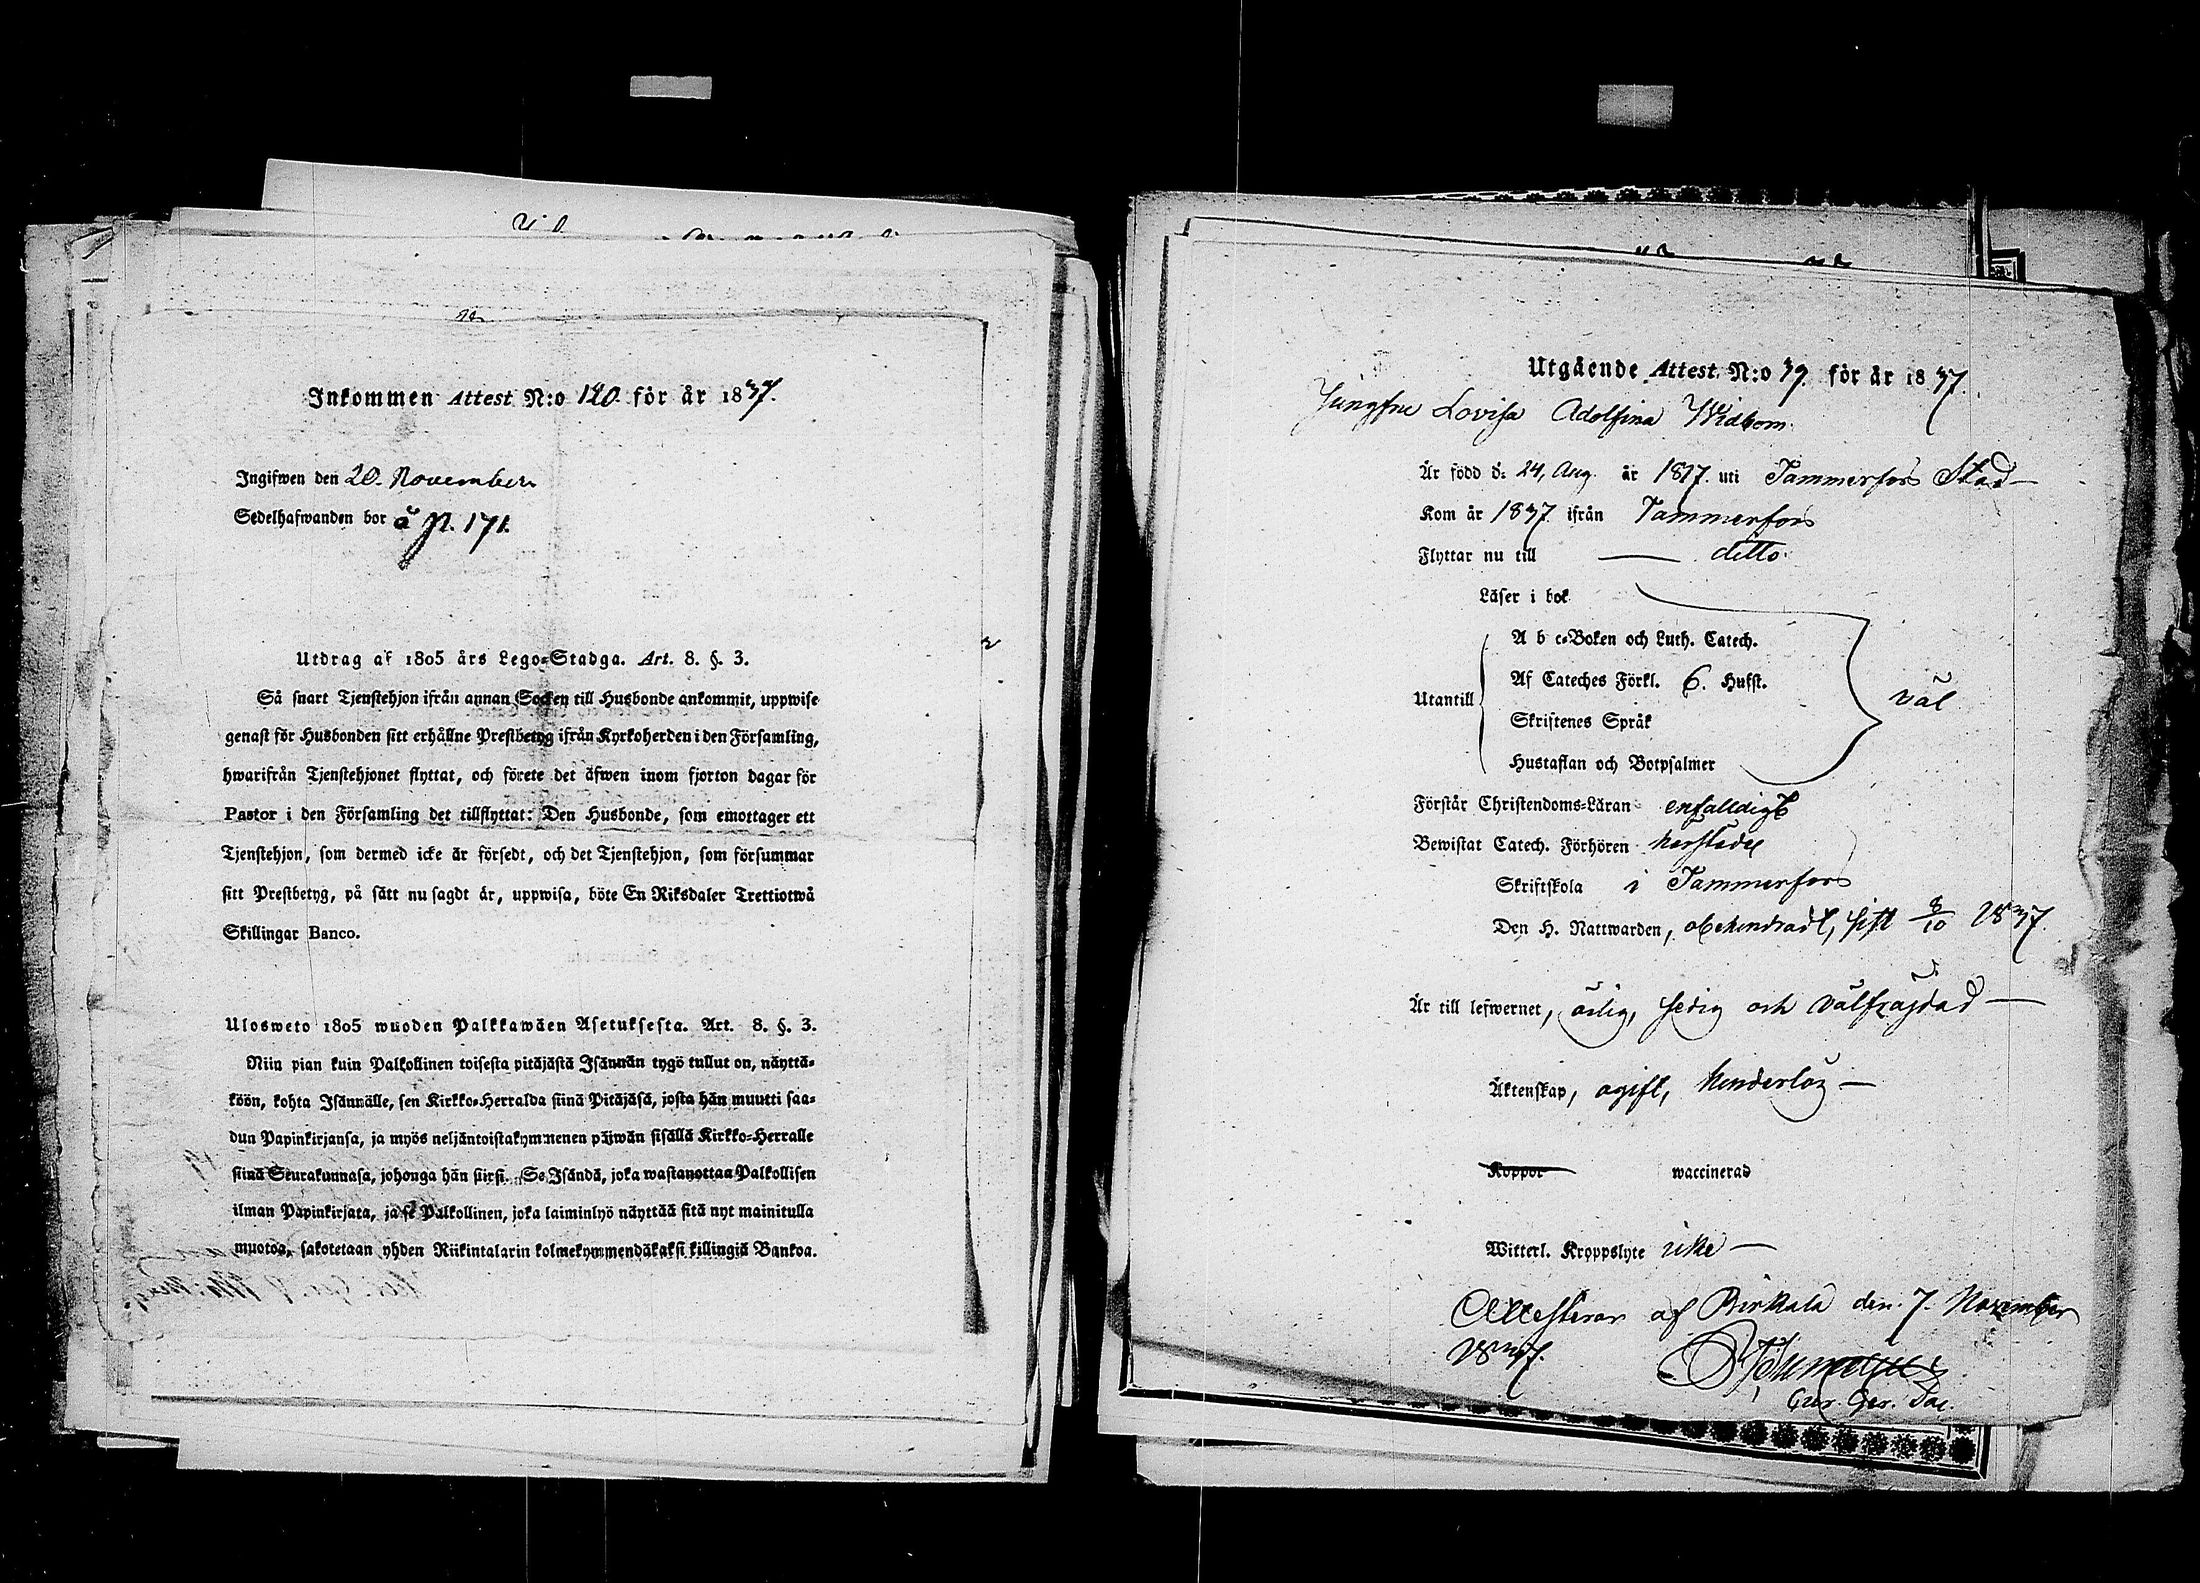 Inkommen Attest N:o 120 för år 1837.
Ingifwen den 20. November
Sedelhafwanden bor å N. 171.
Utdrag af 1805 års Lego-Stadga. Art. 8. §. 3.
Så snart Tjenstehjon ifrån annan Socken till Husbonde ankommit, uppwise
genast för Husbonden sitt erhållne Prestbetyg ifrån Kyrkoherden i den Församling,
hwarifrån Tjenstehjonet flyttat, och förete det äfwen inom fjorton dagar för
Pastor i den Församling det tillflyttat: Den Husbonde, som emottager ett
Tjenstehjon, som dermed icke är försedt, och det Tjenstehjon, som försummar
sitt Prestbetyg, på sätt nu sagdt är, uppwisa, böte En Riksdaler Trettiotwå
Skillingar Banco.
Ulosweto 1805 wuoden Palkkawäen Asetuksesta. Art. 8. §. 3.
Niin pian kuin Palkollinen toisesta pitäjästä Isännän tygö tullut on, näyttä-
köön, kohta Isännälle, sen Kirkko-Herralda siinä Pitäjäsä, josta hän muutti saa-
dun Papinkirjansa, ja myös neljäntoistakymmenen päiwän sisällä Kirkko-Herralle
siinä Seurakunnasa, johonga hän siirsi. Se Isändä, joka wastanottaa Palkollisen
ilman Papinkirjata, ja se Palkollinen, joka laiminlyö näyttää sitä nyt mainitulla
muotoa, sakotetaan yhden Riikintalarin kolmekymmendäkaksi killingiä Bankoa.
Utgående Attest N:o 39. för år 1837.
Jungfru Lovisa Adolfina Widbom.
Är född d: 24, Aug. år 1817. uti Tammerfors Stad
Kom år 1837 ifrån Tammerfors
Flyttar nu till ditto.
Läser i bok
A b c-Boken och Luth. Catech.
Af Cateches Förkl. 6. Hufst.
Utantill väl
Skriftenes Språk
Hustaflan och Botpsalmer
Förstår Christendoms-Läran enfalldigt
Bewistat Catech. Förhören härstädes
Skriftskola i Tammerfors
Den H. Nattwarden, obehindradt, sist 8/10 1837.
Är till lefwernet, ärlig, sedig och välfrägdad
Äktenskap, ogift, hinderlös
Koppor waccinerad
Witterl. Kroppslyte icke
Attesterar af Birkala den 7. November
1837.